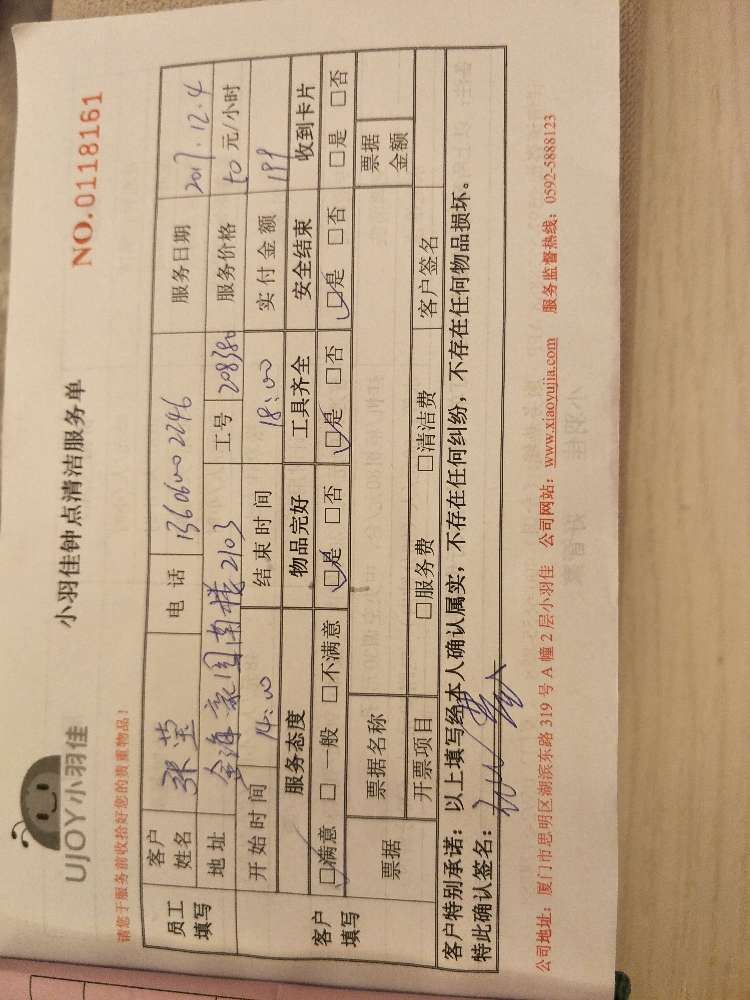 UJOY小羽佳
小羽佳钟点清洁服务单
NO.0118161
请您于服务前收拾好您的贵重物品！
员工填写 客户姓名 张莹 电话 13606002246 服务日期 2017.12.4
地址 金海豪园南楼2103 工号 208380 服务价格 50元/小时
开始时间 14:00 结束时间 18:00 实付金额 199
客户填写 服务态度 物品完好 工具齐全 安全结束 收到卡片
☑满意 □一般 □不满意 ☑是 □否 ☑是 □否 ☑是 □否 □是 □否
票据 票据名称 票据金额
开票项目 □服务费 □清洁费 客户签名
客户特别承诺：以上填写经本人确认属实，不存在任何纠纷，不存在任何物品损坏。
特此确认签名：
公司地址：厦门市思明区湖滨东路319号A幢2层小羽佳 公司网站：www.xiaoyujia.com 服务监督热线：0592-5888123